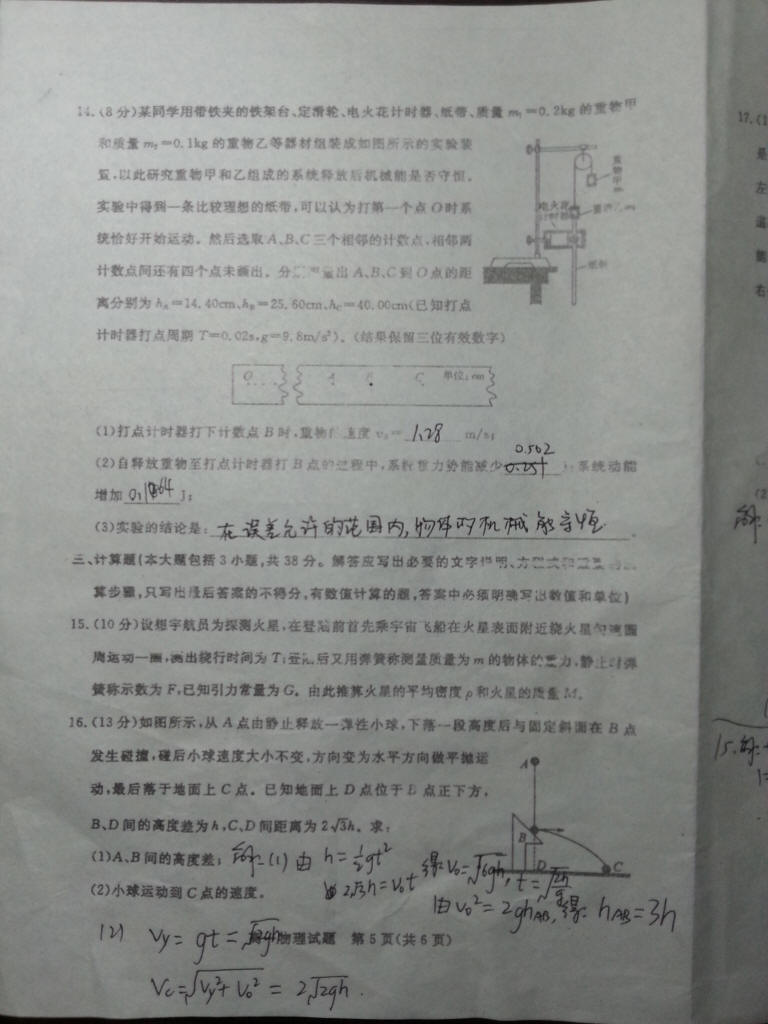 14.(8分)某同学用带铁夹的铁架台、定滑轮、电火花计时器、纸带、质量 m₁=0.2kg 的重物甲
和质量 m₂=0.1kg 的重物乙等器材组装成如图所示的实验装
置,以此研究重物甲和乙组成的系统释放后机械能是否守恒。
实验中得到一条比较理想的纸带,可以认为打第一个点 O 时系
统恰好开始运动。然后选取 A、B、C 三个相邻的计数点,相邻两
计数点间还有四个点未画出。分 量出 A、B、C 到 O 点的距
离分别为 hA=14.40cm,hB=25.60cm,hC=40.00cm(已知打点
计时器打点周期 T=0.02s,g=9.8m/s²)。(结果保留三位有效数字)
重物甲
电火花
计时器
纸带
O A B C 单位:cm
(1)打点计时器打下计数点 B 时,重物的速度 vB= 1.28 m/s;
0.502
(2)自释放重物至打点计时器打 B 点的过程中,系统重力势能减少 0.251 J;系统动能
增加 J;
(3)实验的结论是: 在误差允许的范围内,物体的机械能守恒
三、计算题(本大题包括 3 小题,共 38 分。解答应写出必要的文字说明、方程式和
算步骤,只写出最后答案的不得分,有数值计算的题,答案中必须明确写出数值和单位)
15.(10分)设想宇航员为探测火星,在登陆前首先乘宇宙飞船在火星表面附近绕火星匀速圆
周运动一圈,测出绕行时间为 T;登陆后又用弹簧称测量质量为 m 的物体的重力,静止时弹
簧称示数为 F,已知引力常量为 G。由此推算火星的平均密度 ρ 和火星的质量 M。
16.(13分)如图所示,从 A 点由静止释放一弹性小球,下落一段高度后与固定斜面在 B 点
发生碰撞,碰后小球速度大小不变,方向变为水平方向做平抛运
动,最后落于地面上 C 点。已知地面上 D 点位于 B 点正下方,
B、D 间的高度差为 h,C、D 间距离为 2√3h。求:
(1)A、B 间的高度差;
(2)小球运动到 C 点的速度。
A
B
D
C
解:(1) 由 h=½gt²
2√3h=v₀t 得:v₀=√6gh, t=√2h/g
由 v₀²=2ghAB, 得: hAB=3h
(2) Vy=gt=√2gh
Vc=√Vy²+V₀² = 2√2gh.
物理试题 第 5 页(共 6 页)
17.(1
是
左
右
(2
解:
15.解: